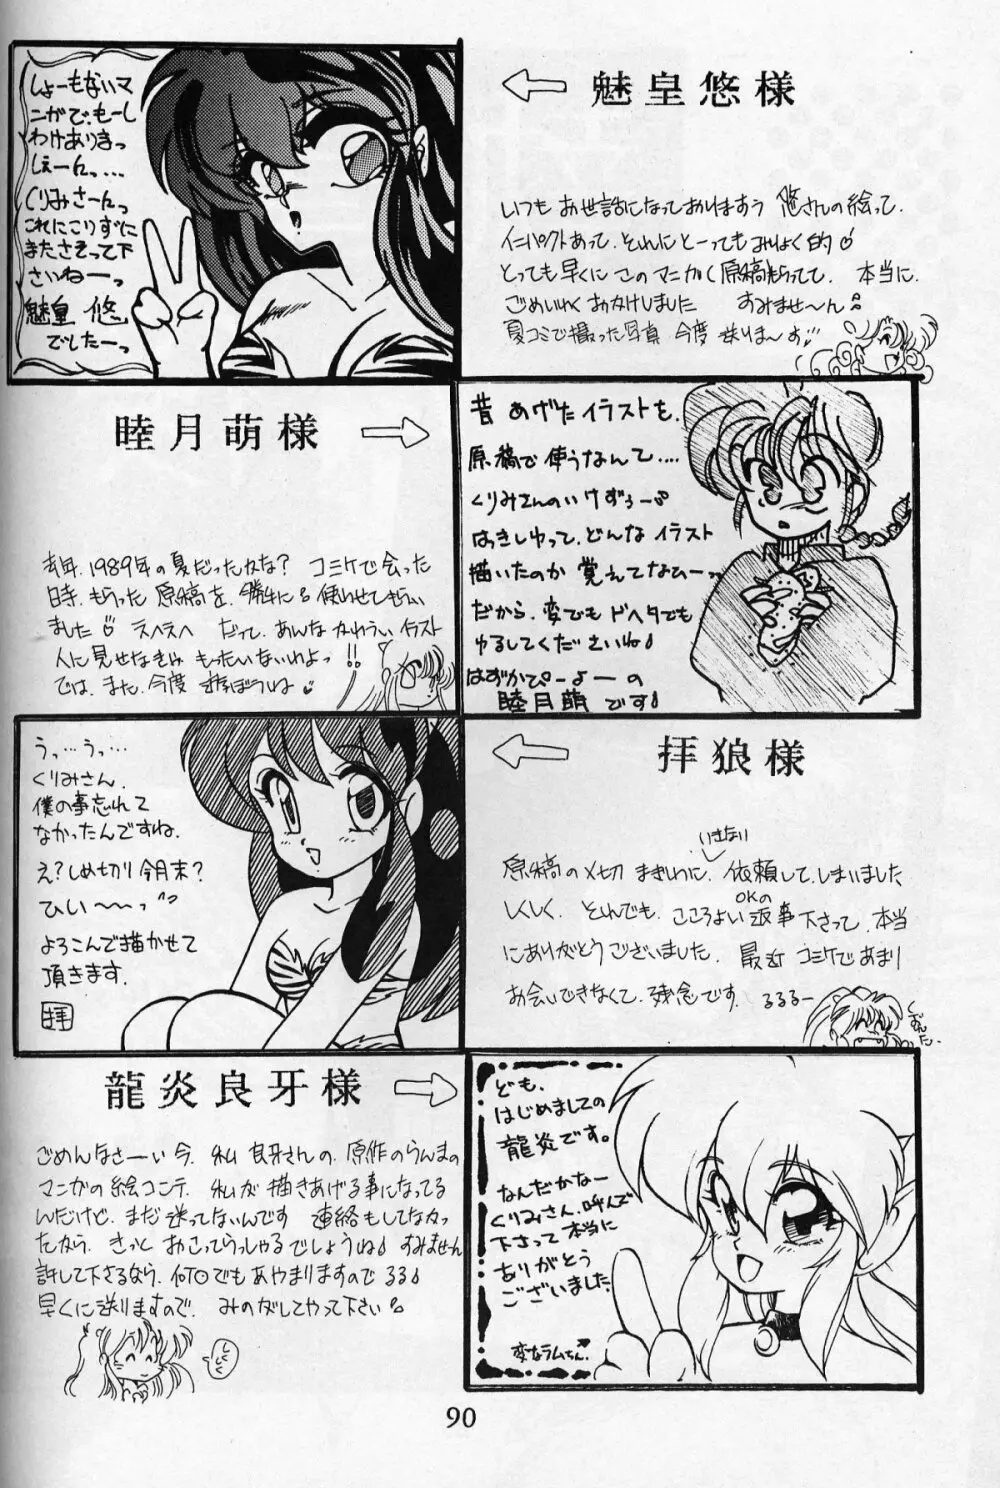 しょーもないマ
ニガで、もーし
わけありまっ
しぇーんっ…
くりみさーんっ
これにこりずに
またさそって下
さいねーっ
魅皇 悠
でしたーっ
魅皇悠様
いつも お世話になっておりますぅ 悠さんの絵って、
インパクトあって、それにとーっても みりょく的
とっても早くに このマンガ 原稿もらってて 本当に
ごめいわく おかけしました すみませ〜ん
夏コミで撮った写真 今度 送りま〜す!!
睦月萌様
去年、1989年の夏だったかな? コミケで会った
時、もらった 原稿を、勝手に 使わせてもらい
ました エヘエヘ だって、あんな かわうい イラスト
人に見せなきゃ もったいないわよっ!!
では、また、今度 遊ぼうね
昔 あげた イラストを、
原稿で 使うなんて、…
くりみさんの いけずぅー
はっきしゆって、どんな イラスト
描いたのか 覚えてなひーっ
だから、変でも ドヘタでも
ゆるしてくださいね
はずかぴーよーの
睦月萌です
うっ…うっ…
くりみさん、
僕の事忘れて
なかったんですね、
え?しめ切り今月末?
ひい〜〜っ
よろこんで描かせて
頂きます。
拝
拝狼様
原稿の〆切 まぎわに、いきなり 依頼して、しまいました
しくしく、それでも、こころよい OKの 返事下さって、本当
にありがとうございました、最近 コミケであまり
お会いできなくて、残念です、るるるー
龍炎良牙様
ごめんなさーい 今、私 良牙さんの、原作のらんまの
マンガの絵コンテ、私が 描きあげる事になってる
んだけど、まだ 送ってないんです 連絡もしてなかっ
たから、きっと おこってらっしゃるでしょうね すみません
許して下さるなら、何でも あやまりますので るる
早くに送りますので、みのがしてやって下さい
しくしく
ども、
はじめましての
龍炎です。
なんだかなー
くりみさん、呼んで
下さって 本当に
ありがとう
ございました
変なラムちん、
90